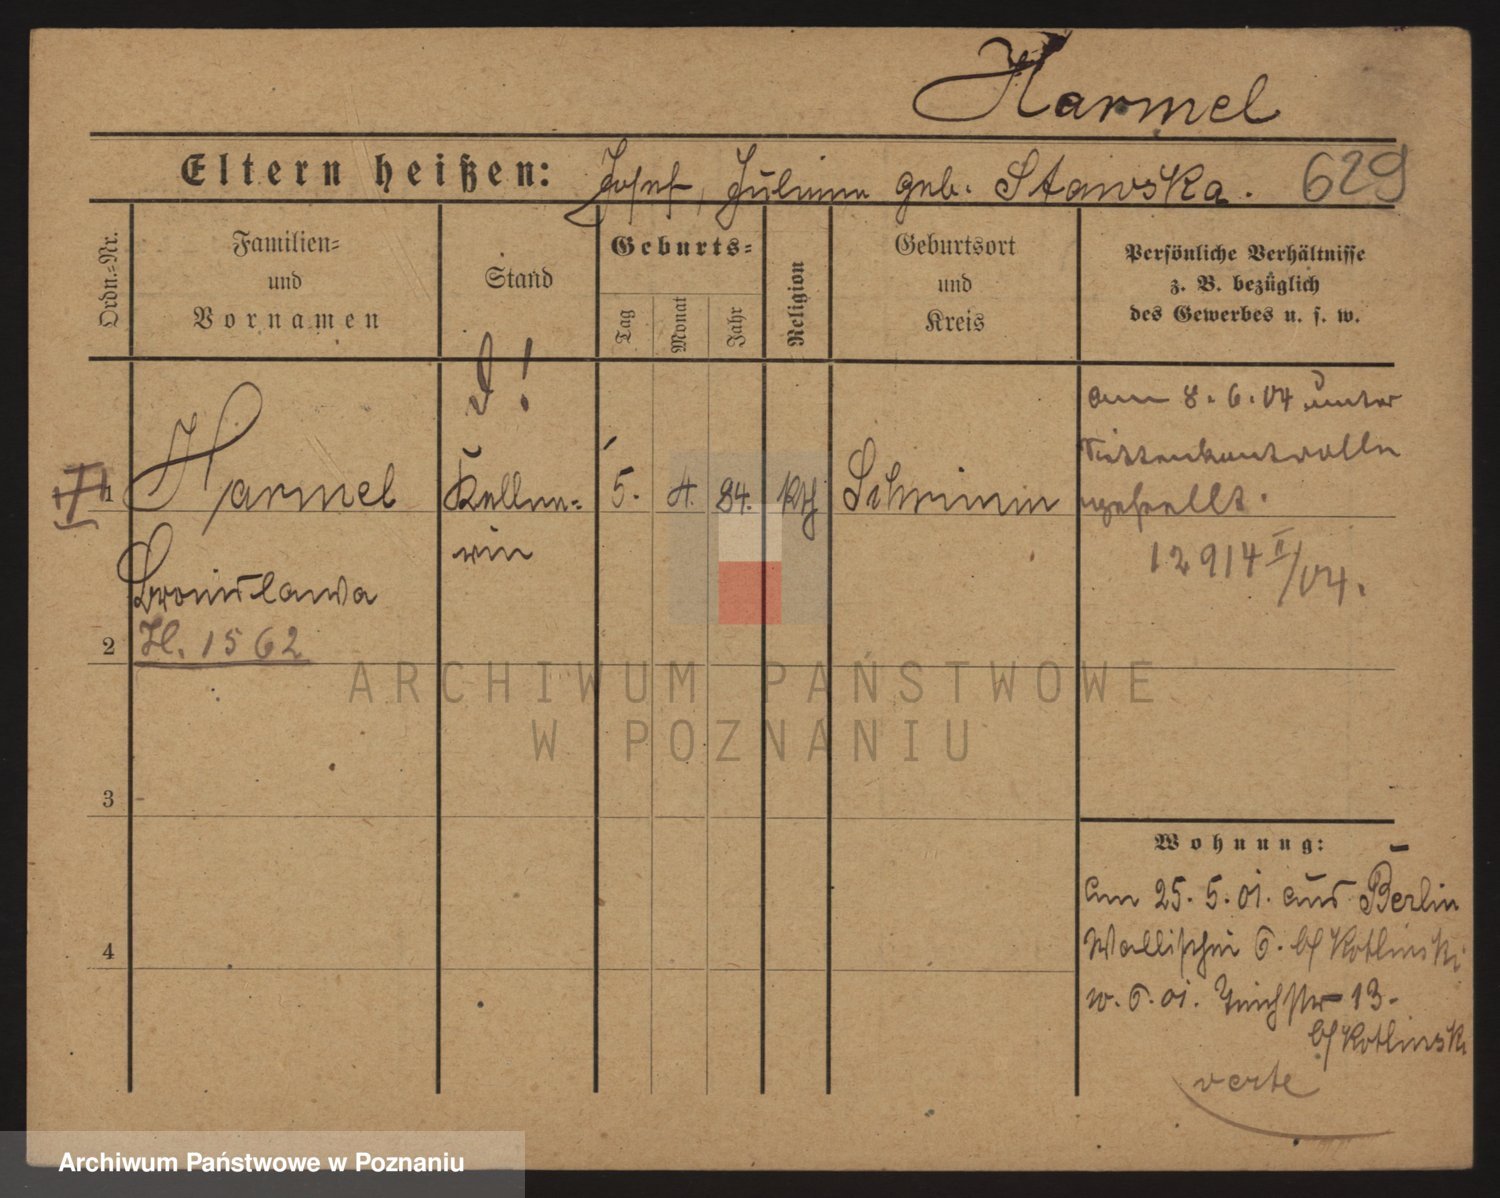 Harmel
Eltern heißen: Josef, Julianna geb. Stawska. 629
Ordn.-Nr.
Familien-
und
Vornamen
Stand
Geburts-
Tag
Monat
Jahr
Religion
Geburtsort
und
Kreis
Persönliche Verhältnisse
z. B. bezüglich
des Gewerbes u. s. w.
1
Harmel
Kellne-
5. 4. 84. kth Schrimm
rin
Bronislawa
H. 1562
am 8. 6. 04 unter
Sittenkontrolle
gestellt.
12914 II/04.
2
3
4
Wohnung:
am 25. 5. 01. aus Berlin
Wallischei 6. b/ Kotlinski
13.
b/ Kotlinski
verte
ARCHIWUM PAŃSTWOWE
W POZNANIU
Archiwum Państwowe w Poznaniu